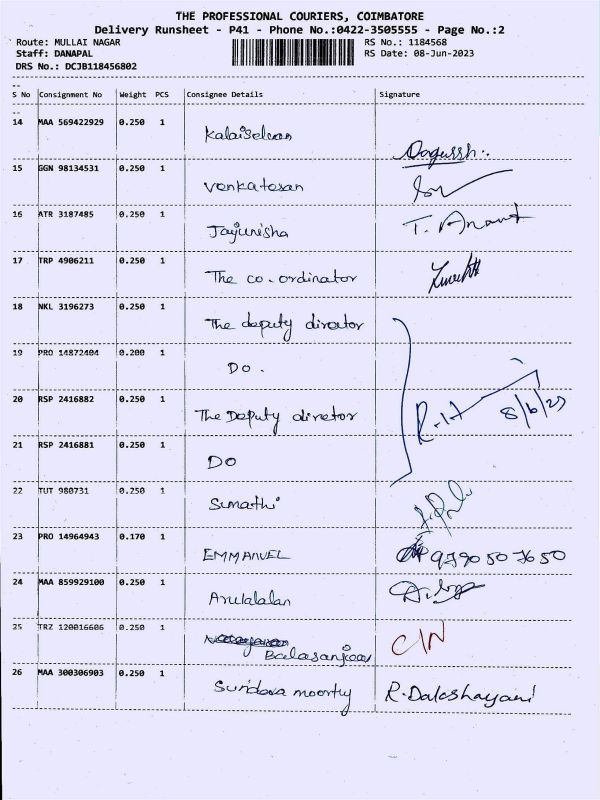 THE PROFESSIONAL COURIERS, COIMBATORE
Delivery Runsheet - P41 - Phone No.:0422-3505555 - Page No.:2
Route: MULLAI NAGAR RS No.: 1184568
Staff: DANAPAL RS Date: 08-Jun-2023
DRS No.: DCJB118456802
S No Consignment No Weight PCS Consignee Details Signature
14 MAA 569422929 0.250 1 Kalaiselvan
15 GGN 98134531 0.250 1 Venkatesan
16 ATR 3187485 0.250 1 Jayunisha T. Anant
17 TRP 4906211 0.250 1 The co-ordinator
18 NKL 3196273 0.250 1 The deputy director
19 PRO 14872404 0.200 1 Do.
20 RSP 2416882 0.250 1 The Deputy director 8/6/23
21 RSP 2416881 0.250 1 DO
22 TUT 980731 0.250 1 Sumathi
23 PRO 14964943 0.170 1 EMMANUEL 9790507650
24 MAA 859929100 0.250 1 Arulalalan
25 TRZ 120016606 0.250 1 C/N
26 MAA 300306903 0.250 1 Sundara moorty R. Dakshayani